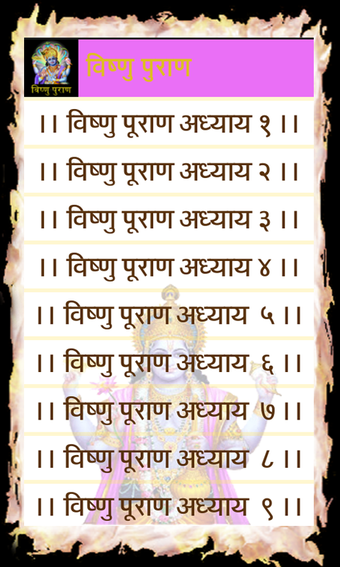 विष्णु पुराण
विष्णु पुराण
।। विष्णु पूराण अध्याय १ ।।
।। विष्णु पूराण अध्याय २ ।।
।। विष्णु पूराण अध्याय ३ ।।
।। विष्णु पूराण अध्याय ४ ।।
।। विष्णु पूराण अध्याय  ५ ।।
।। विष्णु पूराण अध्याय  ६ ।।
।। विष्णु पूराण अध्याय  ७ ।।
।। विष्णु पूराण अध्याय  ८ ।।
।। विष्णु पूराण अध्याय  ९ ।।